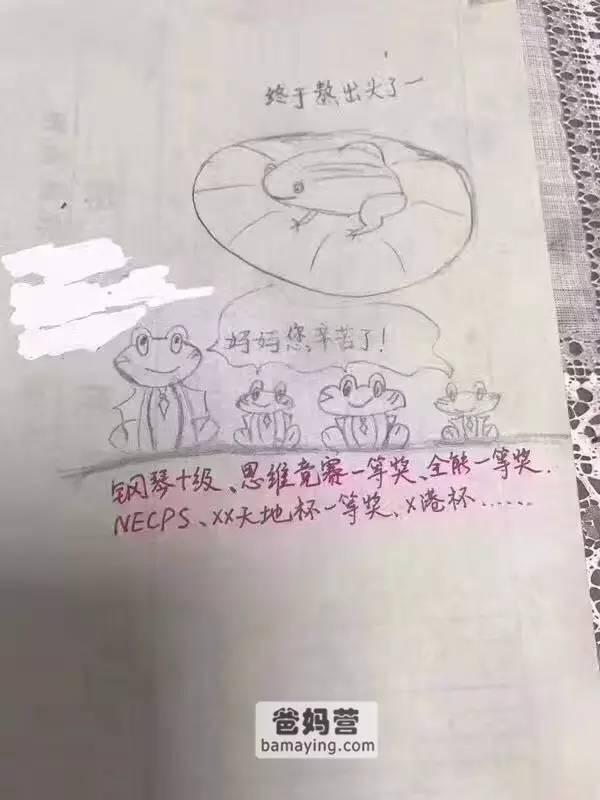 终于熬出头了一
妈妈您辛苦了!
钢琴十级、思维竞赛一等奖、全能一等奖、
NECPS、XX天地杯一等奖、X港杯......
爸妈营
bamaying.com